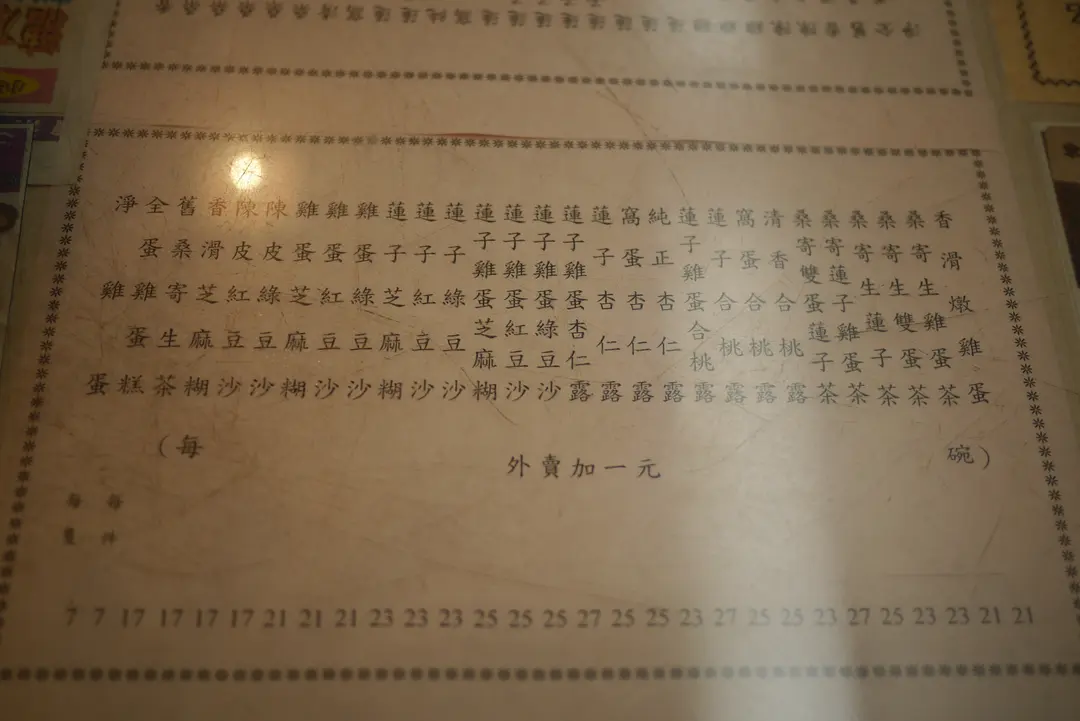 香滑燉雞蛋 21
桑寄生雞蛋茶 21
桑寄生雙蛋茶 23
桑寄生蓮子茶 23
桑寄蓮子雞蛋茶 25
桑寄雙蛋蓮子茶 27
清香合桃露 23
窩蛋合桃露 25
蓮子合桃露 25
蓮子雞蛋合桃露 27
純正杏仁露 23
窩蛋杏仁露 25
蓮子杏仁露 25
蓮子雞蛋杏仁露 27
蓮子雞蛋綠豆沙 25
蓮子雞蛋紅豆沙 25
蓮子雞蛋芝麻糊 25
蓮子綠豆沙 23
蓮子紅豆沙 23
蓮子芝麻糊 23
雞蛋綠豆沙 21
雞蛋紅豆沙 21
雞蛋芝麻糊 21
陳皮綠豆沙 17
陳皮紅豆沙 17
香滑芝麻糊 17
舊桑寄生茶 17
全蛋雞蛋糕 每件 7
淨雞蛋 每隻 7
(每碗)
外賣加一元